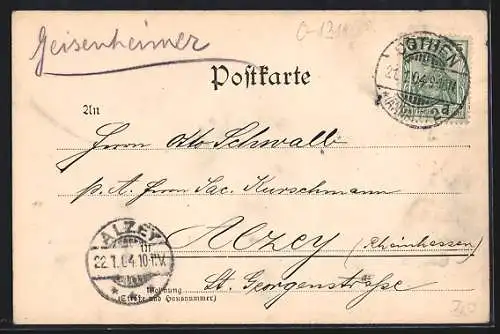 Geisenheimer
Postkarte
CÖTHEN
21.1.04
(ANHALT) 2d
An
Herrn Otto Schwalb
p. A. Herrn Jac. Kurschmann
in
Alzey (Rheinhessen)
St. Georgenstraße
Wohnung
(Straße und Hausnummer)
ALZEY
22.1.04.10-11V.